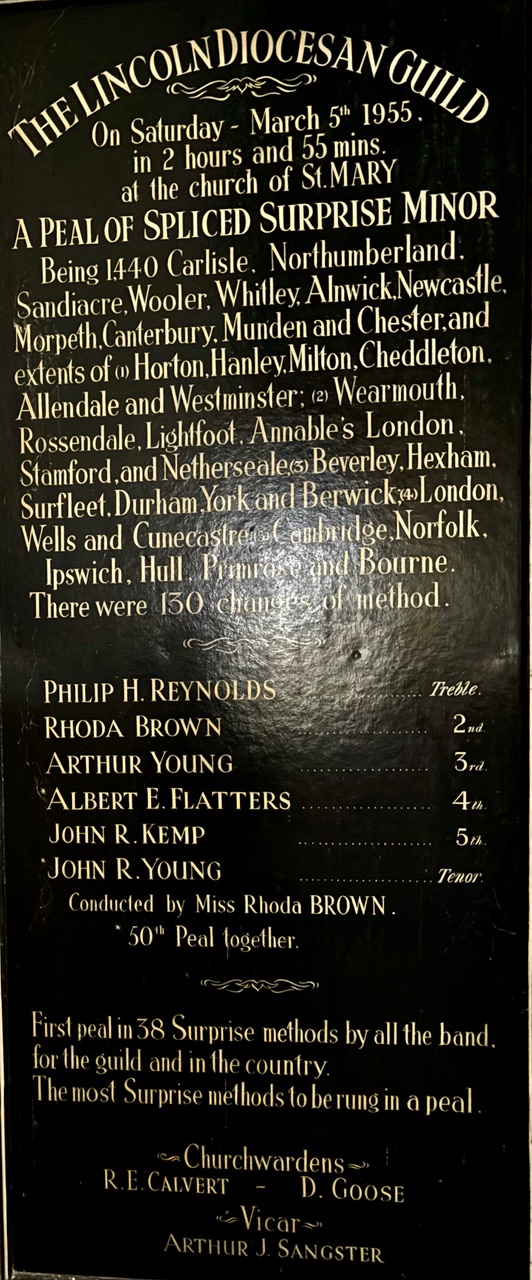 THE LINCOLN DIOCESAN GUILD
On Saturday - March 5th 1955.
in 2 hours and 55 mins.
at the church of St. MARY
A PEAL OF SPLICED SURPRISE MINOR
Being 1440 Carlisle, Northumberland,
Sandiacre, Wooler, Whitley, Alnwick, Newcastle,
Morpeth, Canterbury, Munden and Chester, and
extents of (1) Horton, Hanley, Milton, Cheddleton,
Allendale and Westminster; (2) Wearmouth,
Rossendale, Lightfoot, Annable's London,
Stamford, and Netherseale; (3) Beverley, Hexham,
Surfleet, Durham, York and Berwick; (4) London,
Wells and Cunecastre; (5) Cambridge, Norfolk,
Ipswich, Hull, Primrose and Bourne.
There were 130 changes of method.
PHILIP H. REYNOLDS ........ Treble.
RHODA BROWN ........ 2nd.
ARTHUR YOUNG ........ 3rd.
*ALBERT E. FLATTERS ........ 4th.
JOHN R. KEMP ........ 5th.
*JOHN R. YOUNG ........ Tenor.
Conducted by Miss Rhoda BROWN.
* 50th Peal together.
First peal in 38 Surprise methods by all the band,
for the guild and in the country.
The most Surprise methods to be rung in a peal.
Churchwardens
R. E. CALVERT - D. GOOSE
Vicar
ARTHUR J. SANGSTER